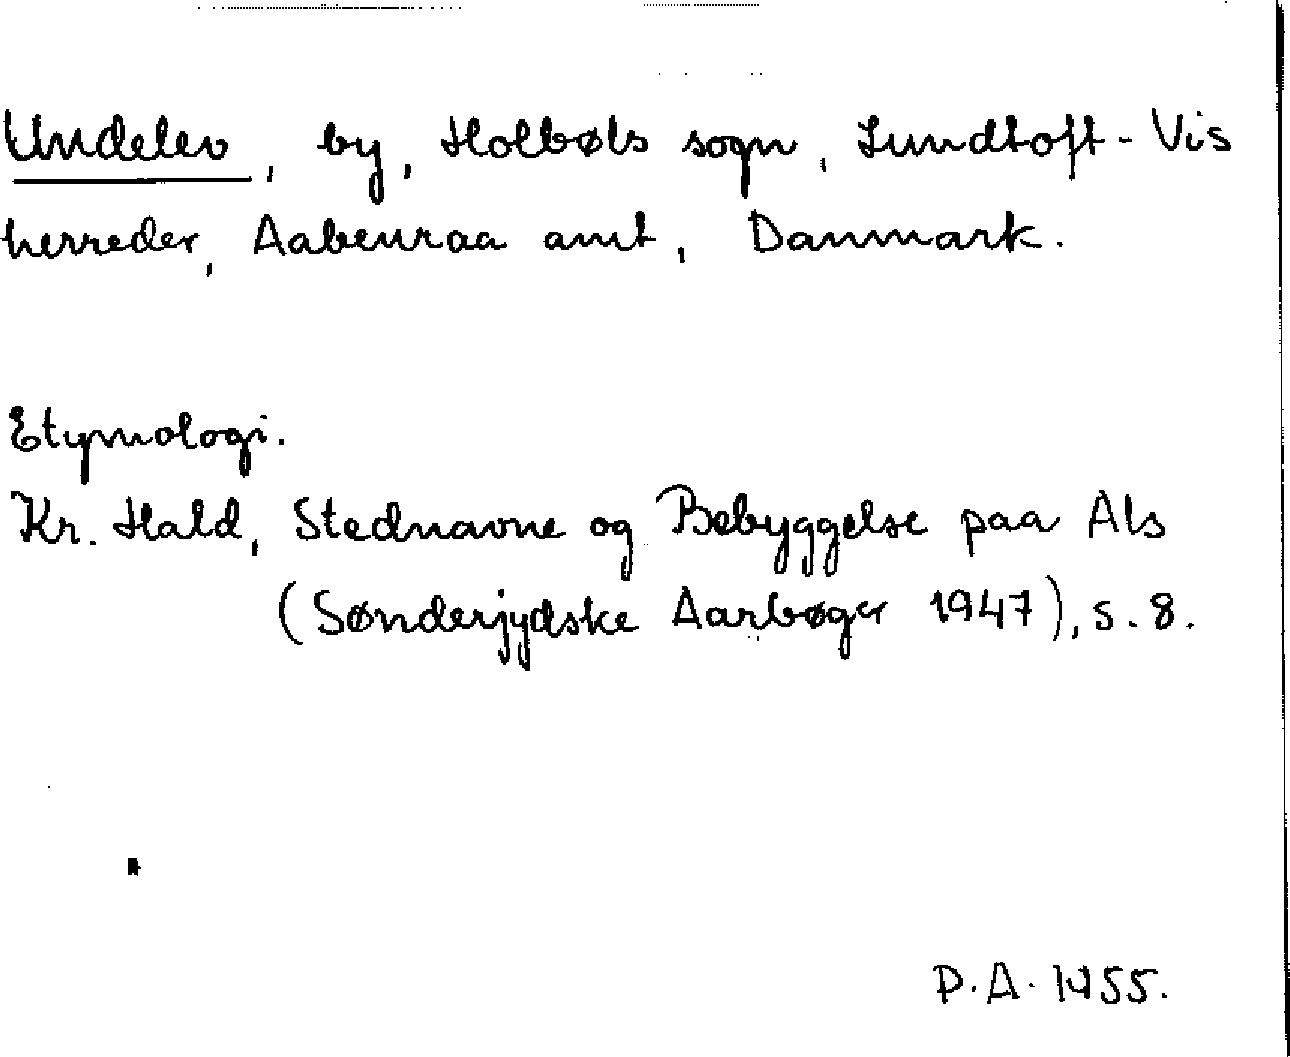 Undelev, by, Holbøls sogn, Lundtoft-Vis
herreder, Aabenraa amt, Danmark.
Etymologi.
Kr. Hald, Stednavne og Bebyggelse paa Als
(Sønderjydske Aarbøger 1947), s. 8.
P.A. 1955.